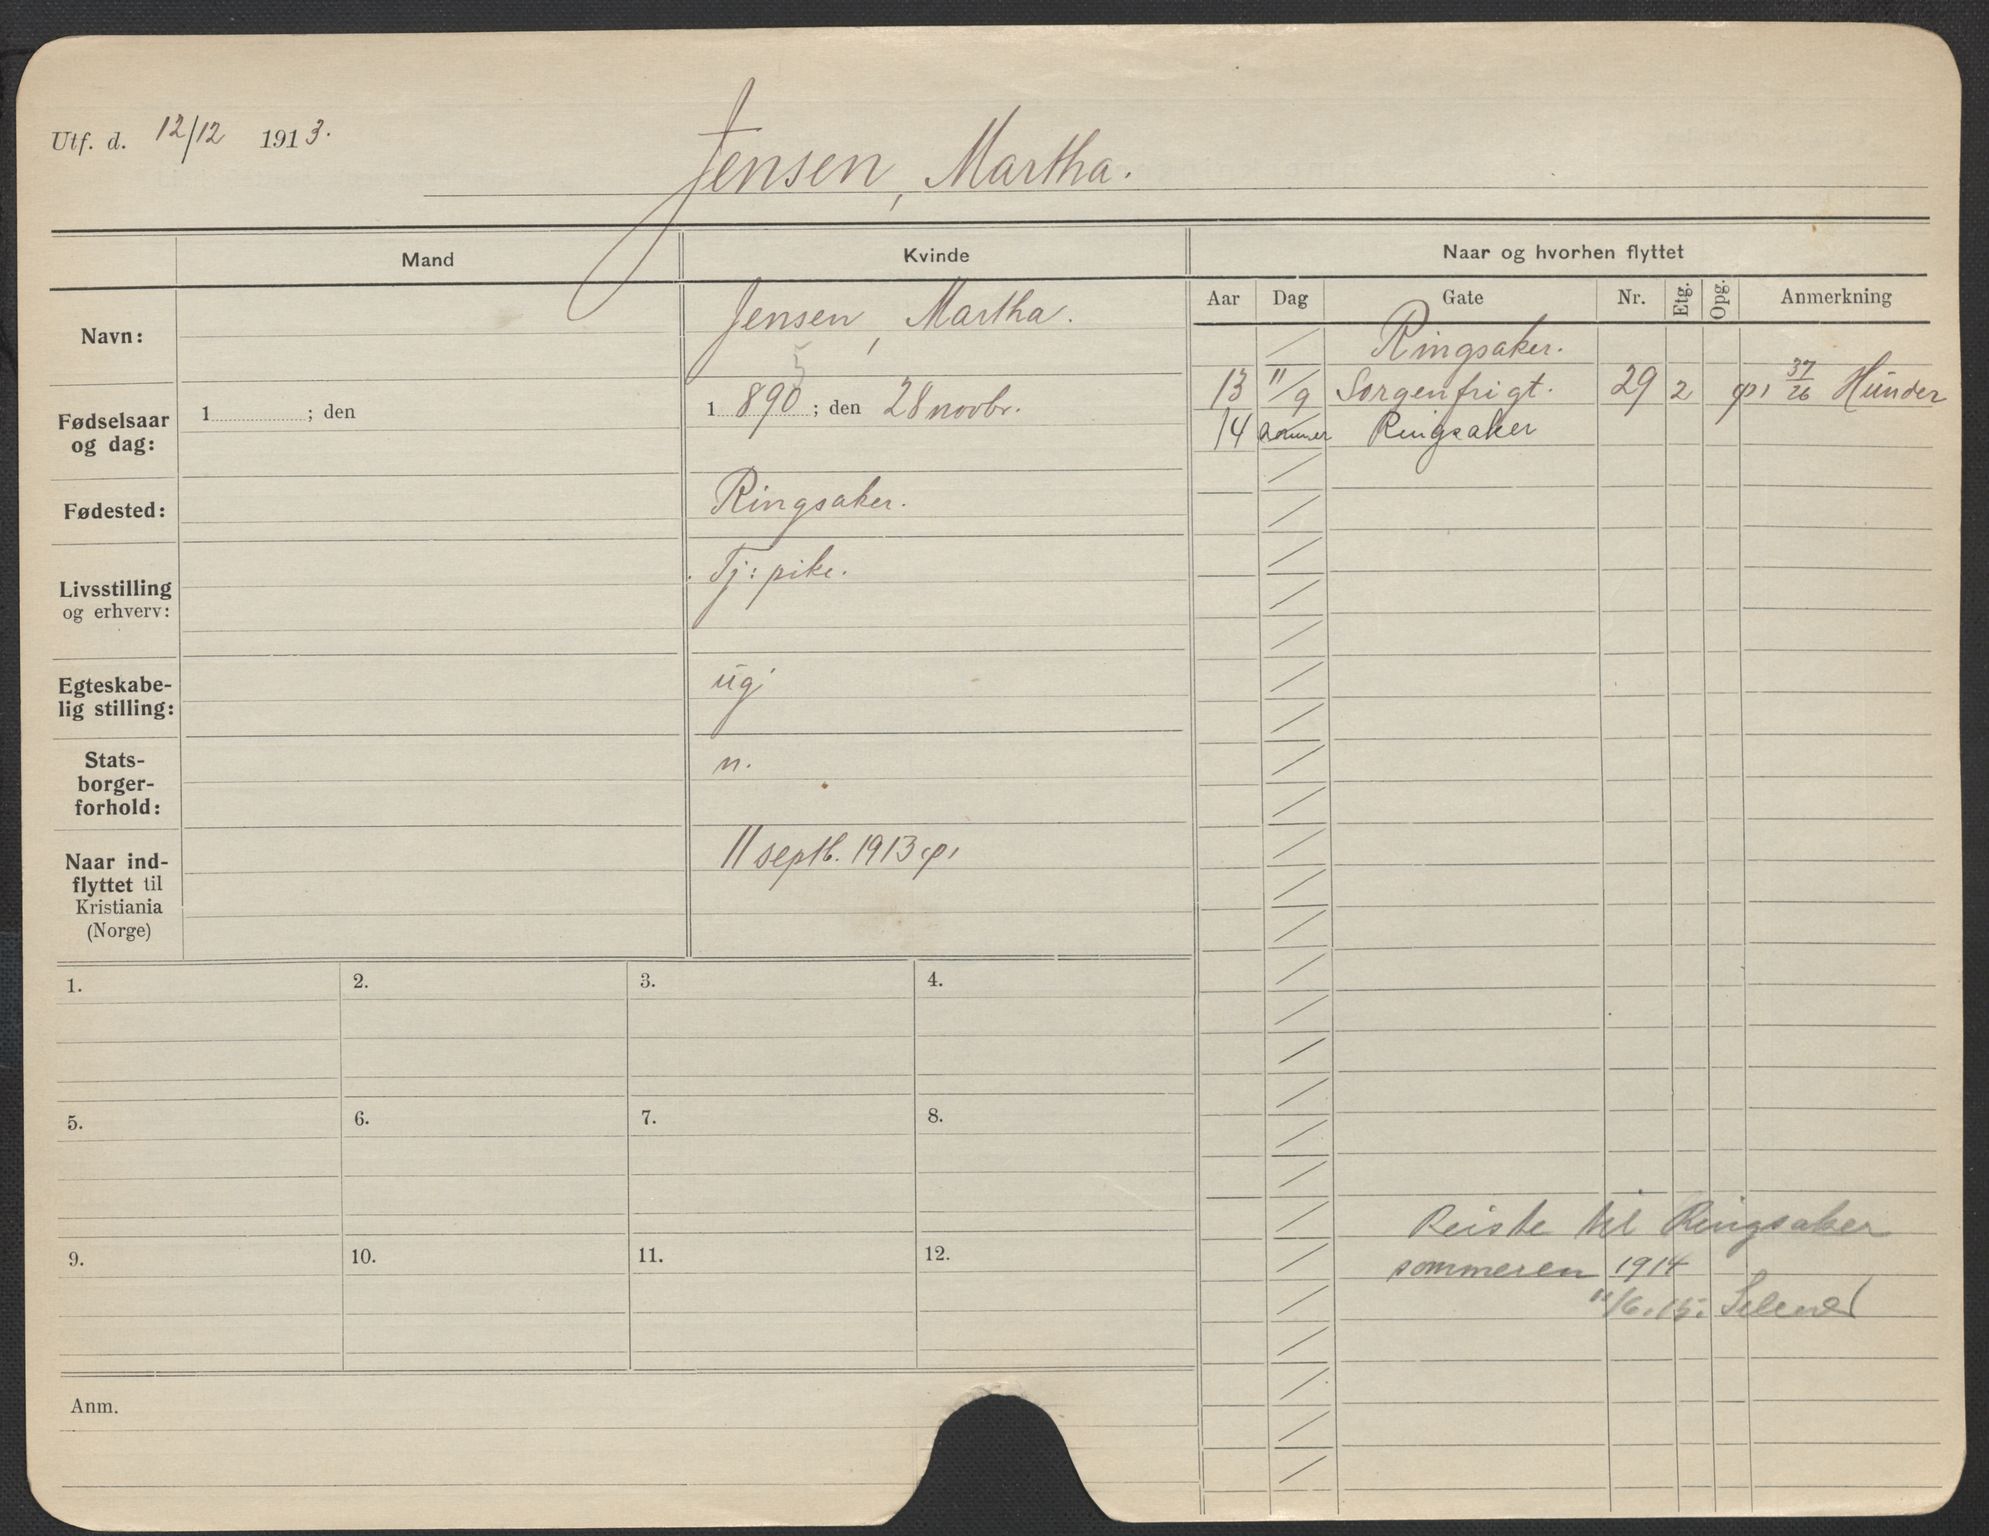 Utf. d. 12/12 1913.
Jensen, Martha.
Mand
Kvinde
Naar og hvorhen flyttet
Aar Dag Gate Nr. Etg. Opg. Anmerkning
Navn:
Jensen, Martha.
Fødselsaar
og dag:
1 ; den
5
1 890 ; den 28 novbr.
Fødested:
Ringsaker.
Livsstilling
og erhverv:
Tj: pike.
Egteskabe-
lig stilling:
ug
Stats-
borger-
forhold:
n.
Naar ind-
flyttet til
Kristiania
(Norge)
11 septb. 1913
Ringsaker.
13 11/9 Sorgenfrigt. 29 2 37/26 Hunder
14 sommer Ringsaker
1. 2. 3. 4.
5. 6. 7. 8.
9. 10. 11. 12.
Anm.
Reiste til Ringsaker
sommeren 1914
11/6.15.